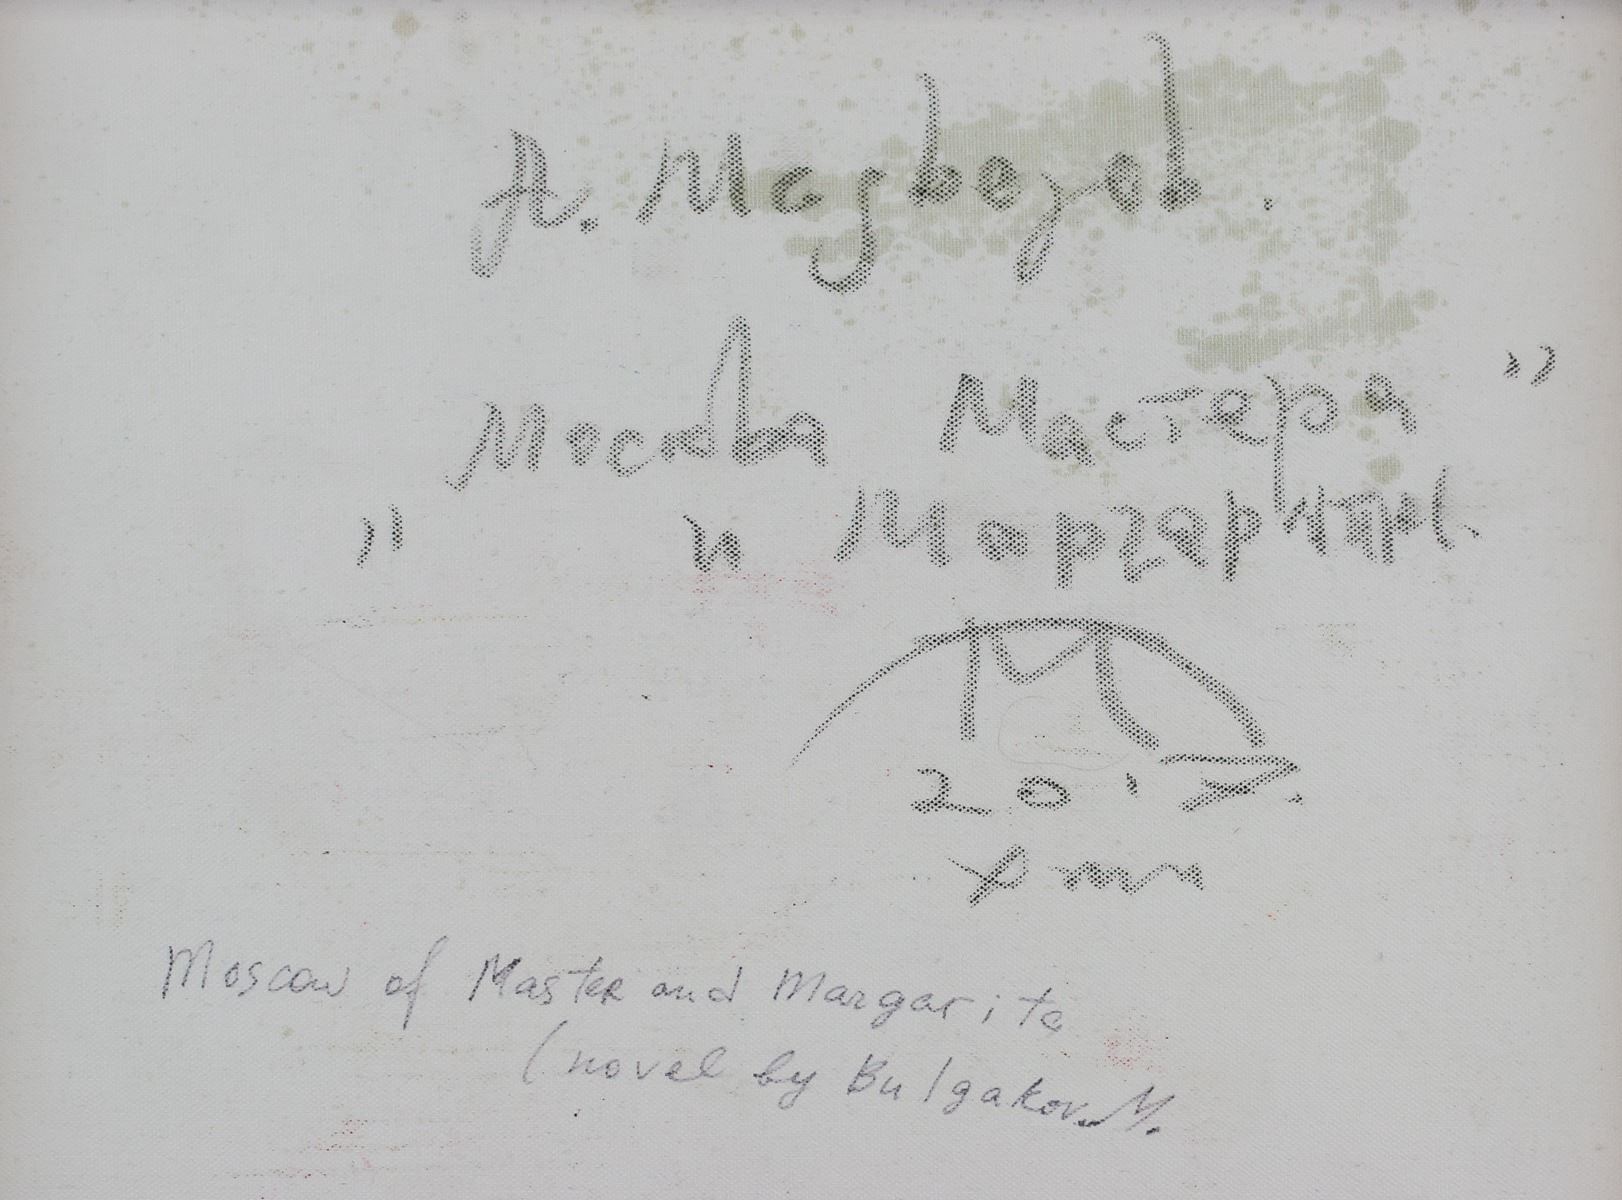 А. Медведев.
Москва Мастера"
" и Маргариты.
2017.
Moscow of Master and Margarita
(novel by Bulgakov M.